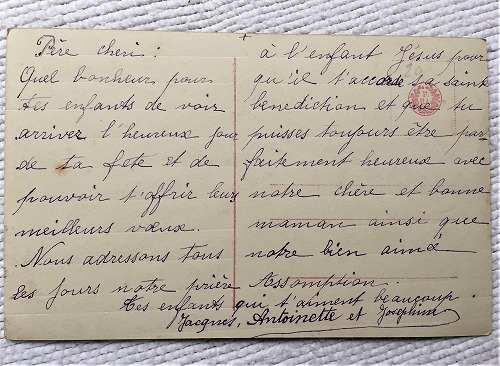 Père cheri :
Quel bonheur pour
tes enfants de voir
arriver l'heureux jour
de ta fete et de
pouvoir t'offrir leurs
meilleurs vœux.
Nous adressons tous
les jours notre prière
à l'enfant Jésus pour
qu'il t'accorde sa sainte
benediction et que tu
puisses toujours être par-
faitement heureux avec
notre chère et bonne
maman ainsi que
notre bien aimé
Assomption.
tes enfants qui t'aiment beaucoup.
Jacques, Antoinette et Josephine